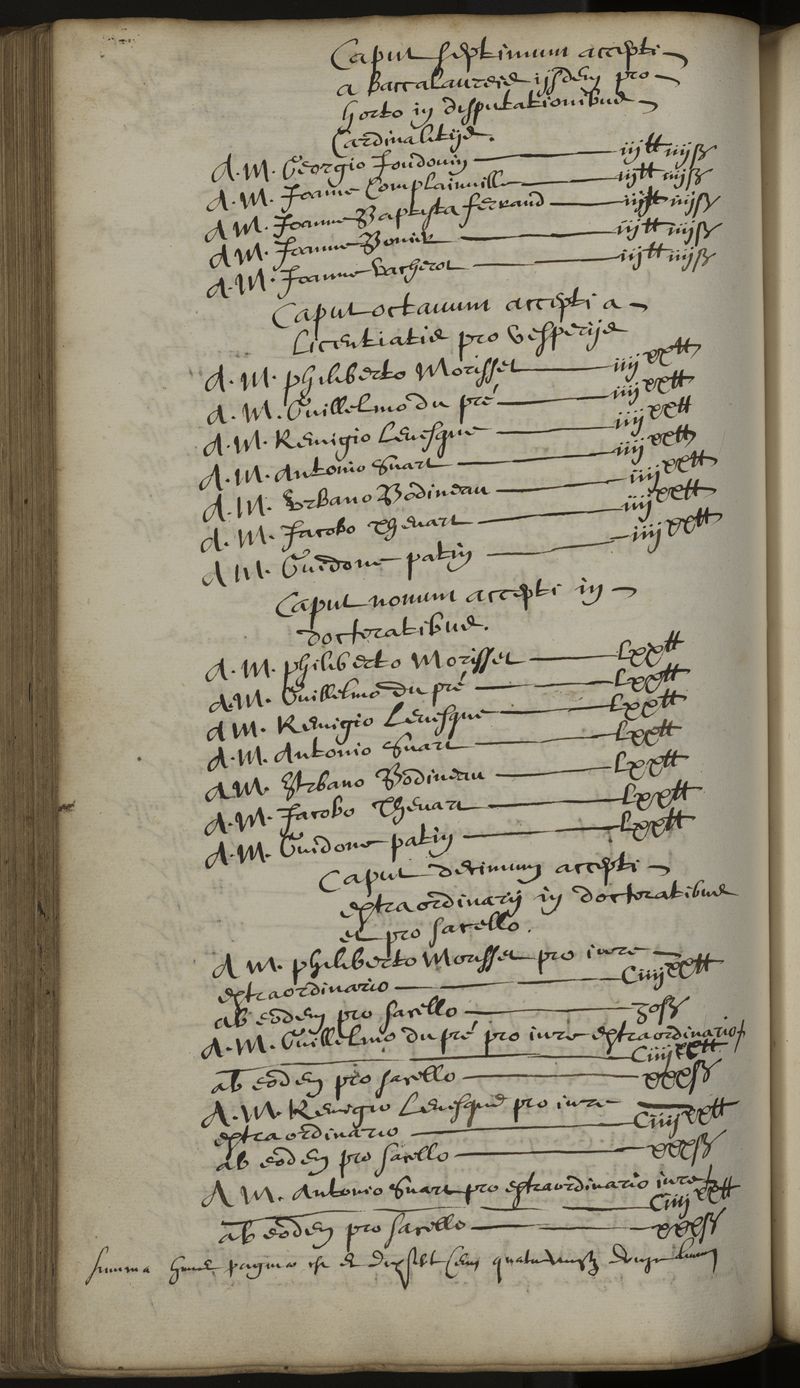 Caput septimum accepti
a Baccalaureis ijsdem pro
horto in disputationibus
Cardinalitijs.
A. M. Georgio Joudouin iiij tt iiij ß
A. M. Joanne Complainville iiij tt iiij ß
A M. Joanne Baptista ferrand iiij tt iiij ß
A M. Joanne iiij tt iiij ß
A. M. Joanne Vacherot iiij tt iiij ß
Caput octauum accepti a
Licentiatis pro vesperijs
A. M. philiberto Morisset iiij xx tt
A. M. Guillelmo du pré iiij xx tt
A. M. Remigio Leuesque iiij xx tt
A. M. Antonio Suart iiij xx tt
A. M. Vrbano Bodineau iiij xx tt
A. M. Jacobo Theuart iiij xx tt
A M. Guidone patin iiij xx tt
Caput nonum accepti in
doctoratibus.
A. M. philiberto Morisset Lxx tt
A. M. Guillelmo du pré Lxx tt
A M. Remigio Leuesque Lxx tt
A. M. Antonio Suart Lxx tt
A M. Vrbano Bodineau Lxx tt
A. M. Jacobo Theuart Lxx tt
A. M. Guidone patin Lxx tt
Caput decimum accepti
extraordinarij in doctoratibus
et pro sacello.
A M. philiberto Morisset pro iure
extraordinario C iiij xx tt
ab eodem pro sacello 30 ß
A. M. Guillelmo du pré pro iure extraordinario
C iiij xx tt
ab eodem pro sacello xxx ß
A. M. Remigio Leuesque pro iure
extraordinario C iiij xx tt
ab eodem pro sacello xxx ß
A M. Antonio Suart pro extraordinario iure
C iiij xx tt
ab eodem pro sacello xxx ß
summa huius paginae est